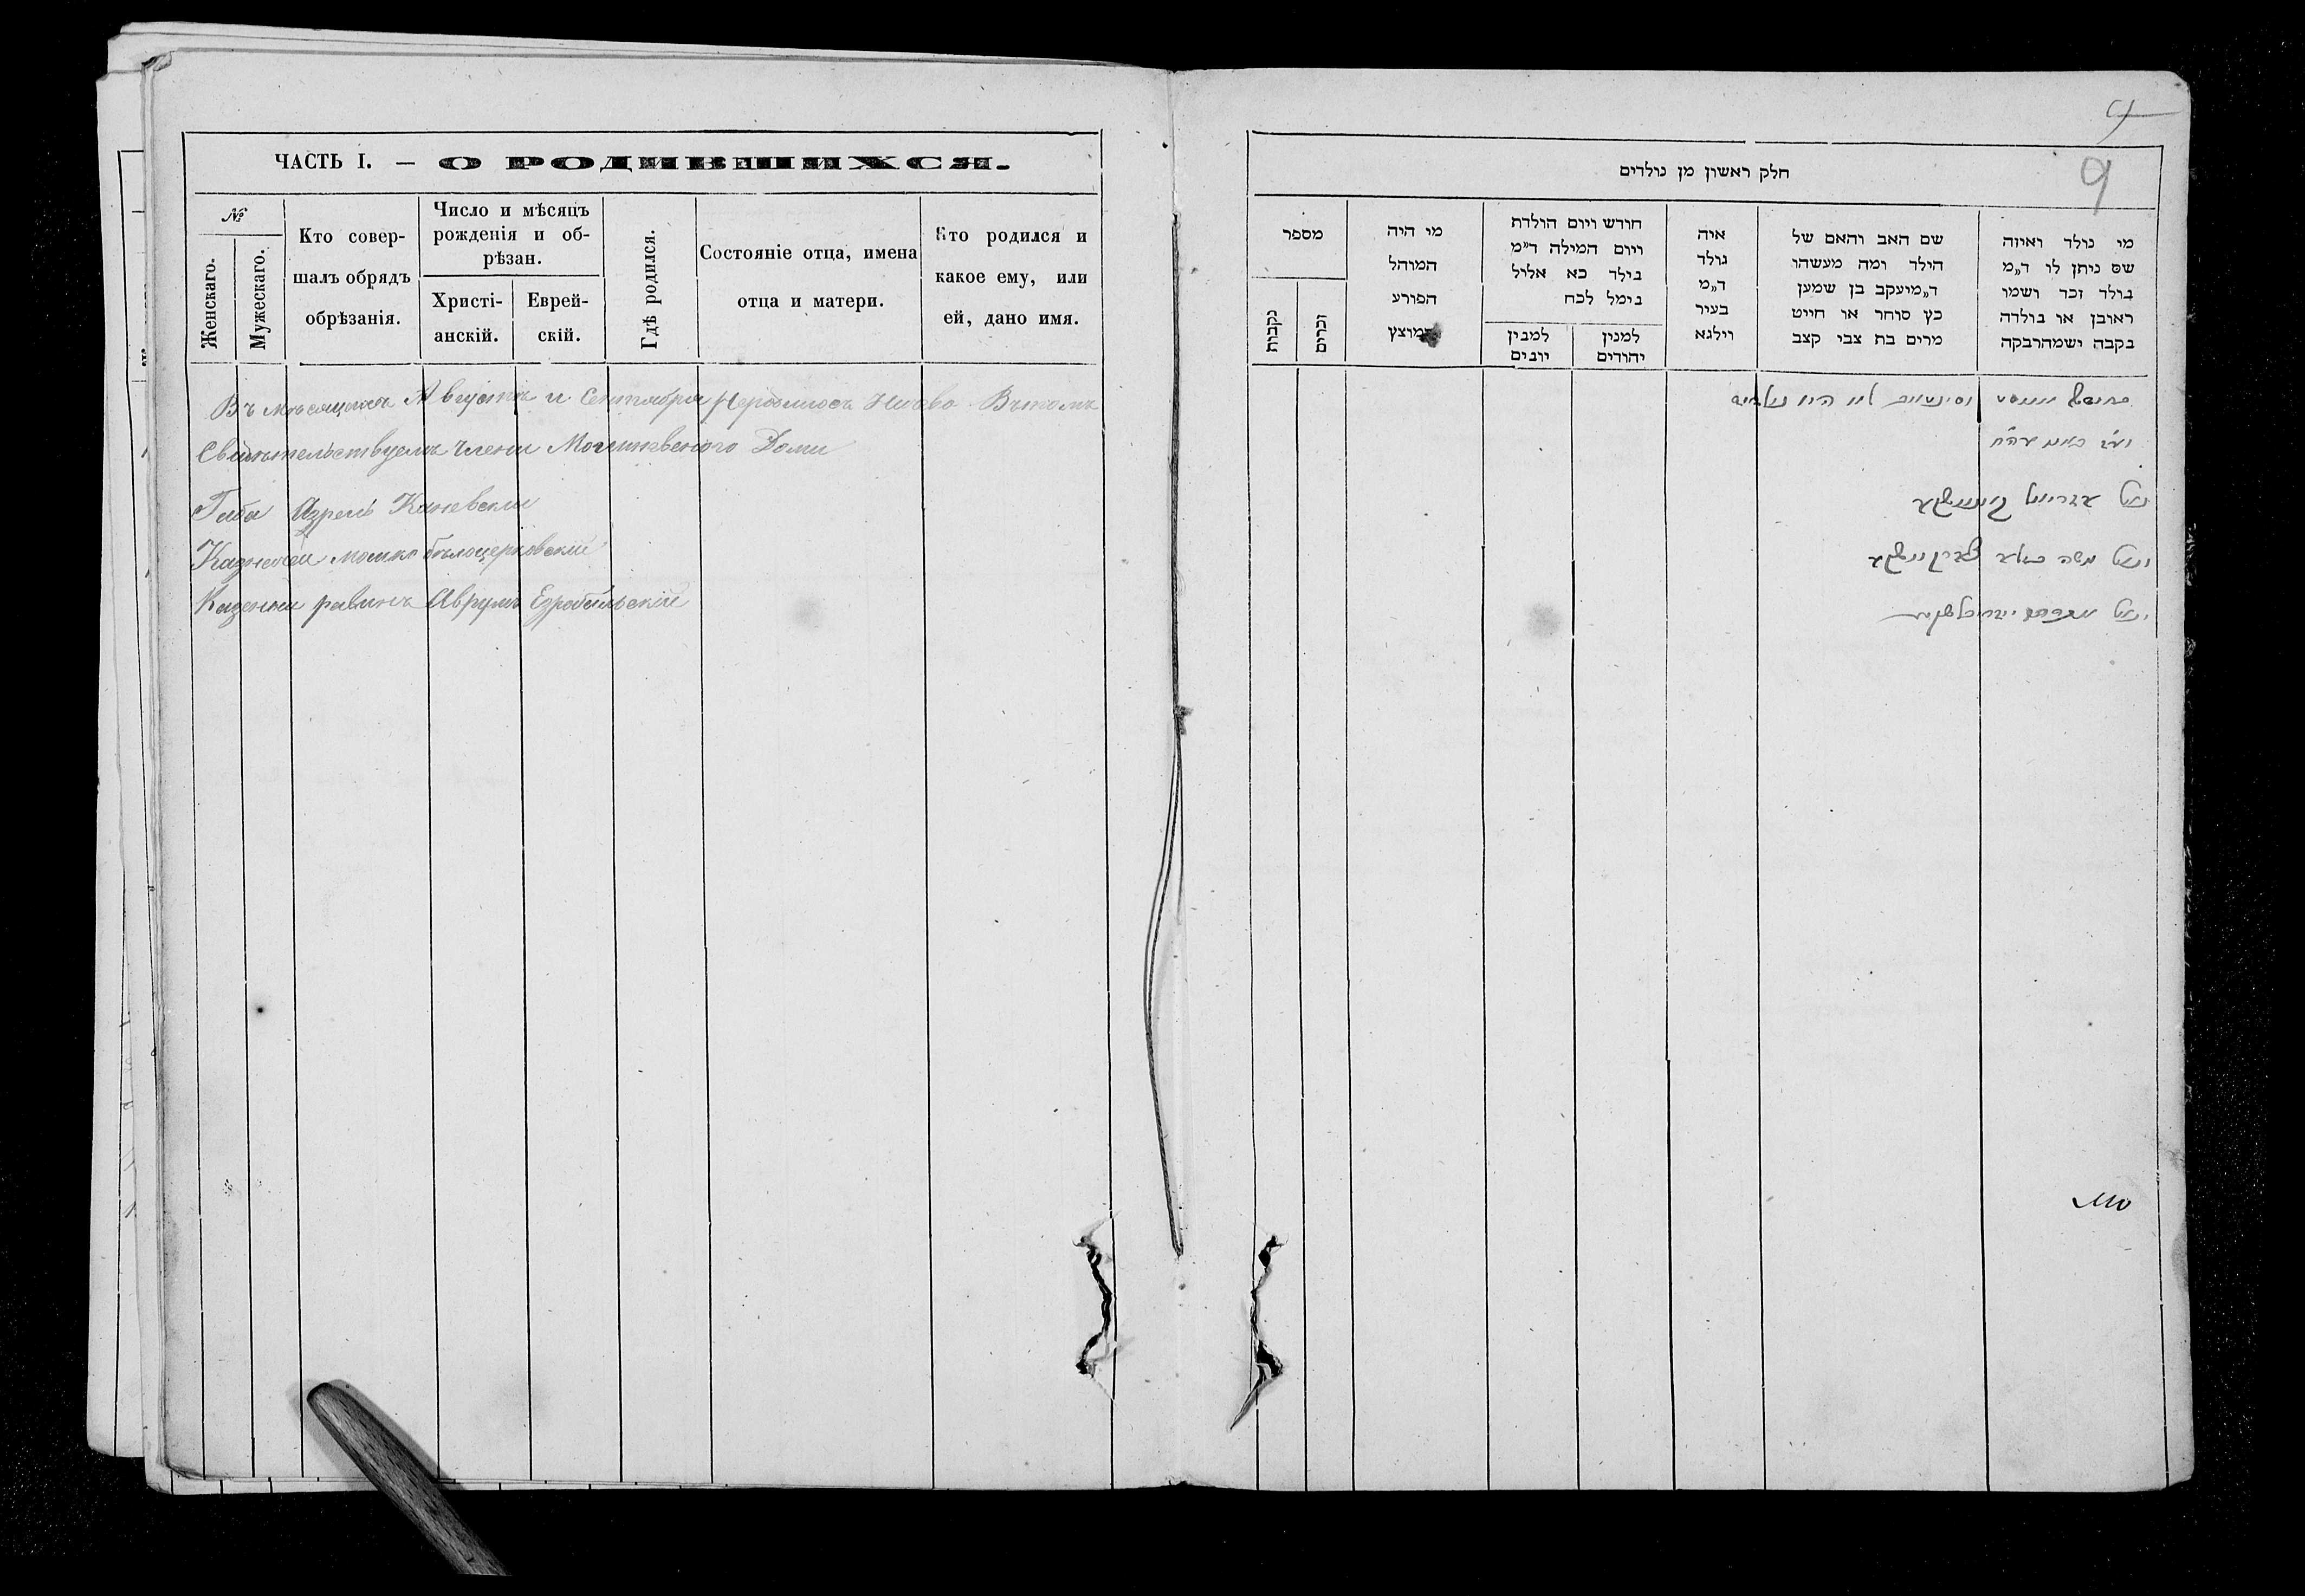 ЧАСТЬ I. — О РОДИВШИХСЯ.
№
Женскаго.
Мужескаго.
Кто совер-
шалъ обрядъ
обрѣзанія.
Число и мѣсяцъ
рожденія и об-
рѣзан.
Христі-
анскій.
Еврей-
скій.
Гдѣ родился.
Состояніе отца, имена
отца и матери.
Кто родился и
какое ему, или
ей, дано имя.
Въ мѣсяцахъ Августѣ и Сентября Неродилось Никаво Вътомъ
Свидѣтельствуемъ Члени Молитвеного Доми
Габа Азрель Каневски
Казначеи Мошко бѣлоцерковскій
Казенни равинъ Аврумъ
9
9
חלק ראשון מן נולדים
מספר
נקבות
זכרים
מי היה
המוהל
הפורע
חודש ויום הולדת
ויום המילה ד״מ
בילד כא אלול
בימל לכח
למבין
יובים
למנין
יהודים
איה
נולד
ד״מ
בעיר
וילגא
שם האב והאם של
הילד ומה מעשהו
ד״מיעקב בן שמען
כץ סוחר או חייט
מרים בת צבי קצב
מי נולד ואיזה
שם ניתן לו ד״מ
בולד זכר ושמו
ראובן או בולדה
בקבה ישמהרבקה
לא היו נולדים
משה